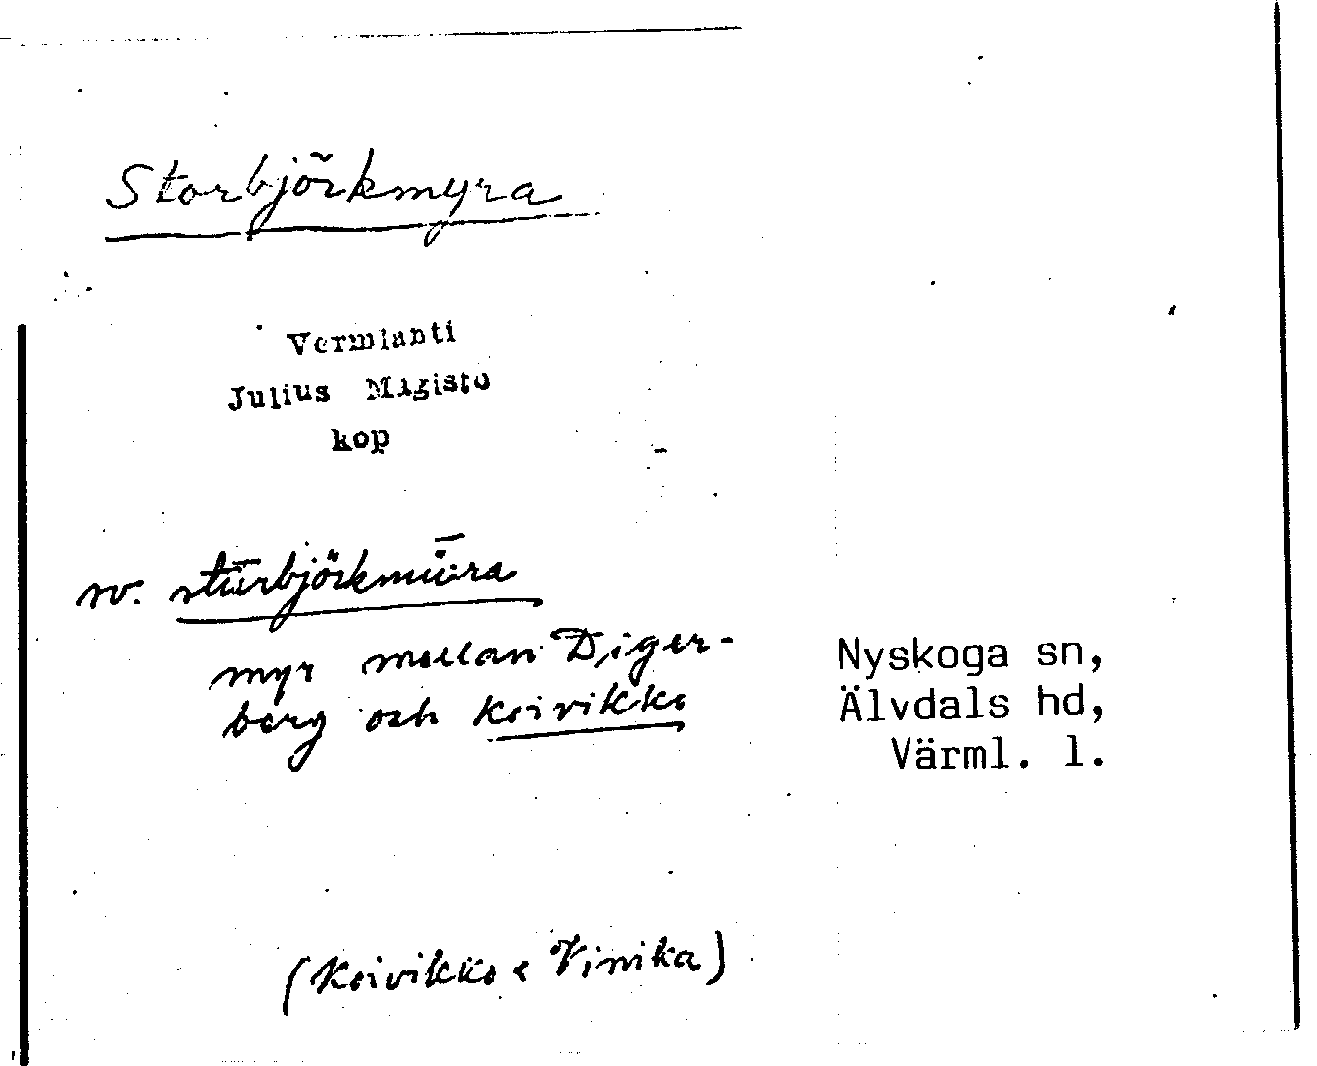 Storbjörkmyra
Vermlanti
Julius Mägiste
kop
sv. stūrbjörkmǖra
myr mellan Diger-
berg och Koivikko
Nyskoga sn,
Älvdals hd,
Värml. l.
(Koivikko < Vinika)